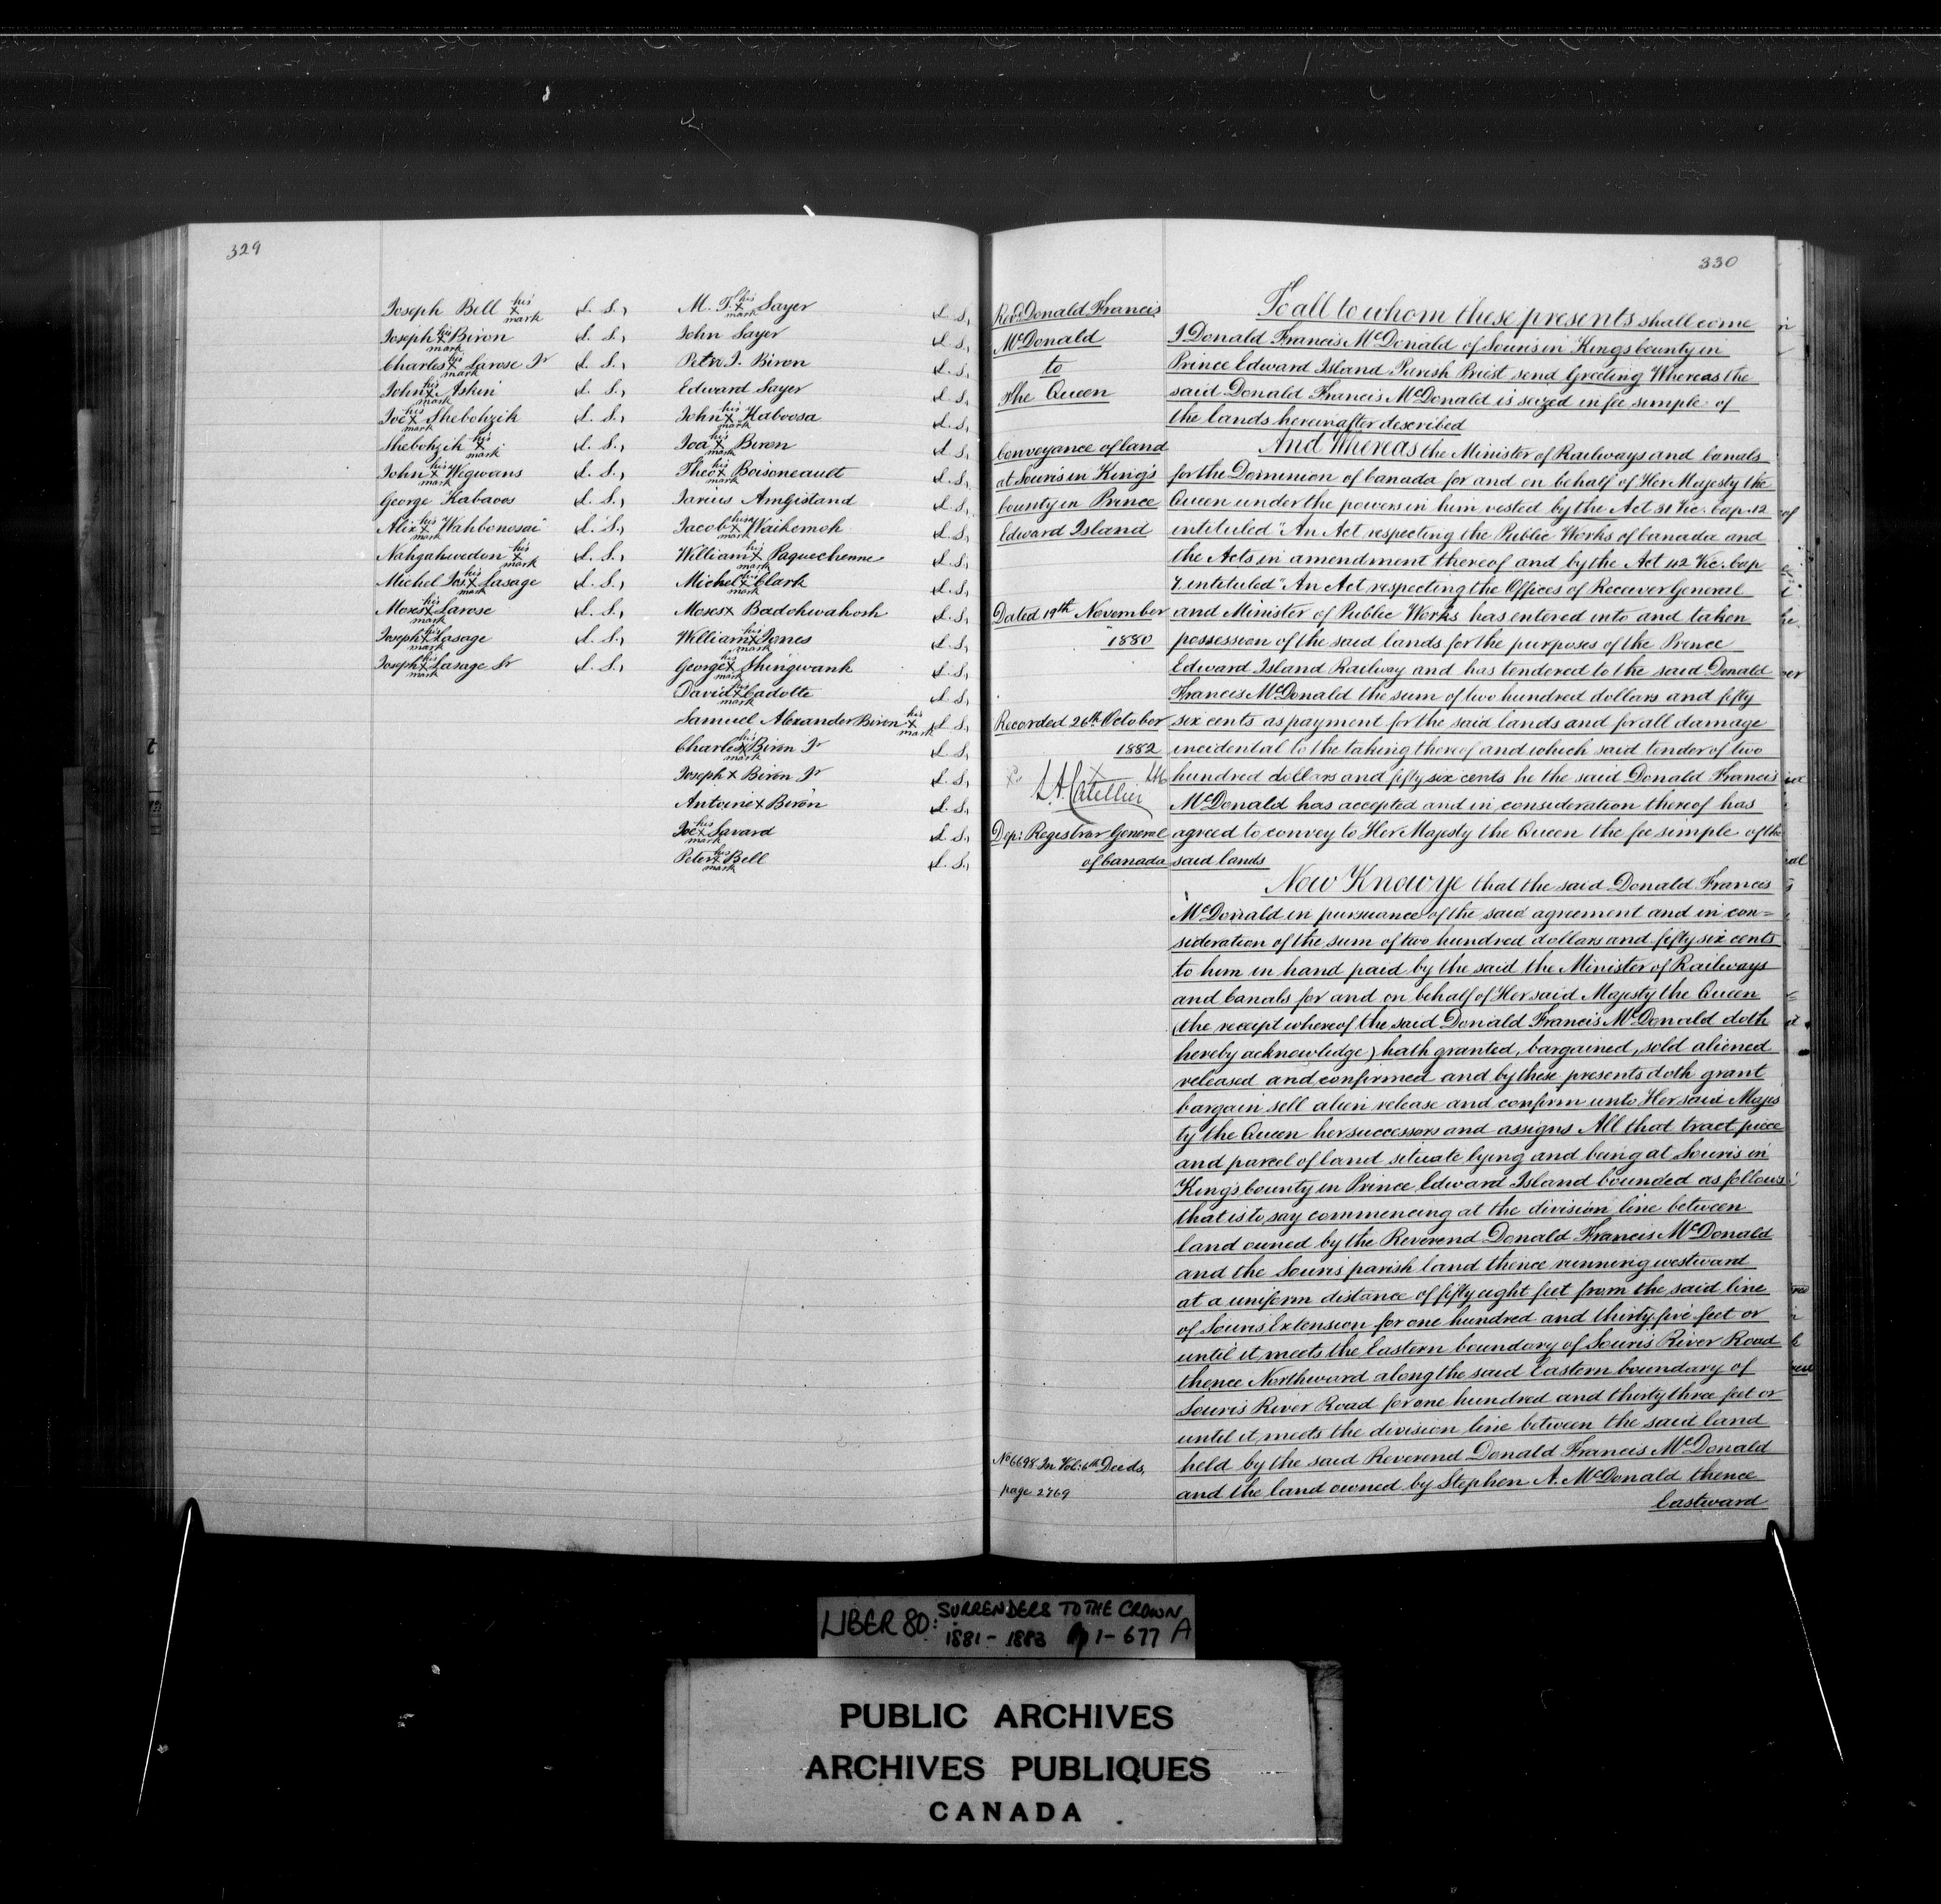 329
Joseph Bell his x mark L. S.,
Joseph his x mark Biron L. S.,
Charles his x mark Larose Jr L. S.,
John his x mark Askin L. S.,
Joe his x mark Shebohzik L. S.,
Shebohzik his x mark L. S.,
John his x mark Wegwans L. S.,
George Kabaoos L. S.,
Alix his x mark Wahbonosai L. S.,
Nahgahwedon his x mark L. S.,
Michel Jos his x mark Lasage L. S.,
Moses his x mark Larose L. S.,
Joseph his x mark Lasage L. S.,
Joseph his x mark Lasage Sr L. S.,
M. T. his x mark Sayer L. S.,
John Sayer L. S.,
Petre J. Biron L. S.,
Edward Sayer L. S.,
John his x mark Kaboosa L. S.,
Joa his x mark Biron L. S.,
Theo his x mark Boisoneault L. S.,
Jarius L. S.,
Jacob his x mark Waikemoh L. S.,
William his x mark Paquechenne L. S.,
Michel his x mark Clark L. S.,
Moses x Badohwahosh L. S.,
William his x mark Jones L. S.,
George his x mark Shingwank L. S.,
David his x mark Cadotte L. S.,
Samuel Alexander Biron his x mark L. S.,
Charles his x mark Biron Jr L. S.,
Joseph x Biron Jr L. S.,
Antoine x Biron L. S.,
Joe his x mark Savard L. S.,
Peter his x mark Bell L. S.,
330
Revd. Donald Francis
McDonald
to
The Queen
Conveyance of land
at Souris in King's
County in Prince
Edward Island
Dated 19th November
1880
Recorded 26th October
1882
L. A. Catellier
Dep: Registrar General
of Canada
No 6698 In Vol: 6th Deeds,
page 2769
To all to whom these presents shall come
I Donald Francis McDonald of Souris in Kings County in
Prince Edward Island Parish Priest send Greeting Whereas the
said Donald Francis McDonald is seized in fee simple of
the lands hereinafter described
And Whereas the Minister of Railways and Canals
for the Dominion of Canada for and on behalf of Her Majesty the
Queen under the powers in him vested by the Act 31 Vic. Cap. 12
intituled "An Act respecting the Public Works of Canada and
the Acts in amendment thereof and by the Act 42 Vic. Cap
7. intituled "An Act respecting the Offices of Receiver General
and Minister of Public Works has entered into and taken
possession of the said lands for the purposes of the Prince
Edward Island Railway and has tendered to the said Donald
Francis McDonald the sum of two hundred dollars and fifty
six cents as payment for the said lands and for all damage
incidental to the taking thereof and which said tender of two
hundred dollars and fifty six cents he the said Donald Francis
McDonald has accepted and in consideration thereof has
agreed to convey to Her Majesty the Queen the fee simple of the
said lands
Now Know ye that the said Donald Francis
McDonald in pursuance of the said agreement and in con=
sideration of the sum of two hundred dollars and fifty six cents
to him in hand paid by the said the Minister of Railways
and Canals for and on behalf of Her said Majesty the Queen
(the receipt whereof the said Donald Francis McDonald doth
hereby acknowledge) hath granted, bargained, sold aliened
released and confirmed and by these presents doth grant
bargain sell alien release and confirm unto Her said Majes
ty the Queen her successors and assigns All that tract piece
and parcel of land situate lying and being at Souris in
King's County in Prince Edward Island bounded as follows
that is to say commencing at the division line between
land owned by the Reverend Donald Francis McDonald
and the Souris parish land thence running westward
at a uniform distance of fifty eight feet from the said line
of Souris Extension for one hundred and thirty five feet or
until it meets the Eastern boundary of Souris River Road
thence Northward along the said Eastern boundary of
Souris River Road for one hundred and thirty three feet or
until it meets the division line between the said land
held by the said Reverend Donald Francis McDonald
and the land owned by Stephen A. McDonald thence
Eastward
LIBER 80: SURRENDERS TO THE CROWN
1881 - 1883 pp 1 - 677 A
PUBLIC ARCHIVES
ARCHIVES PUBLIQUES
CANADA